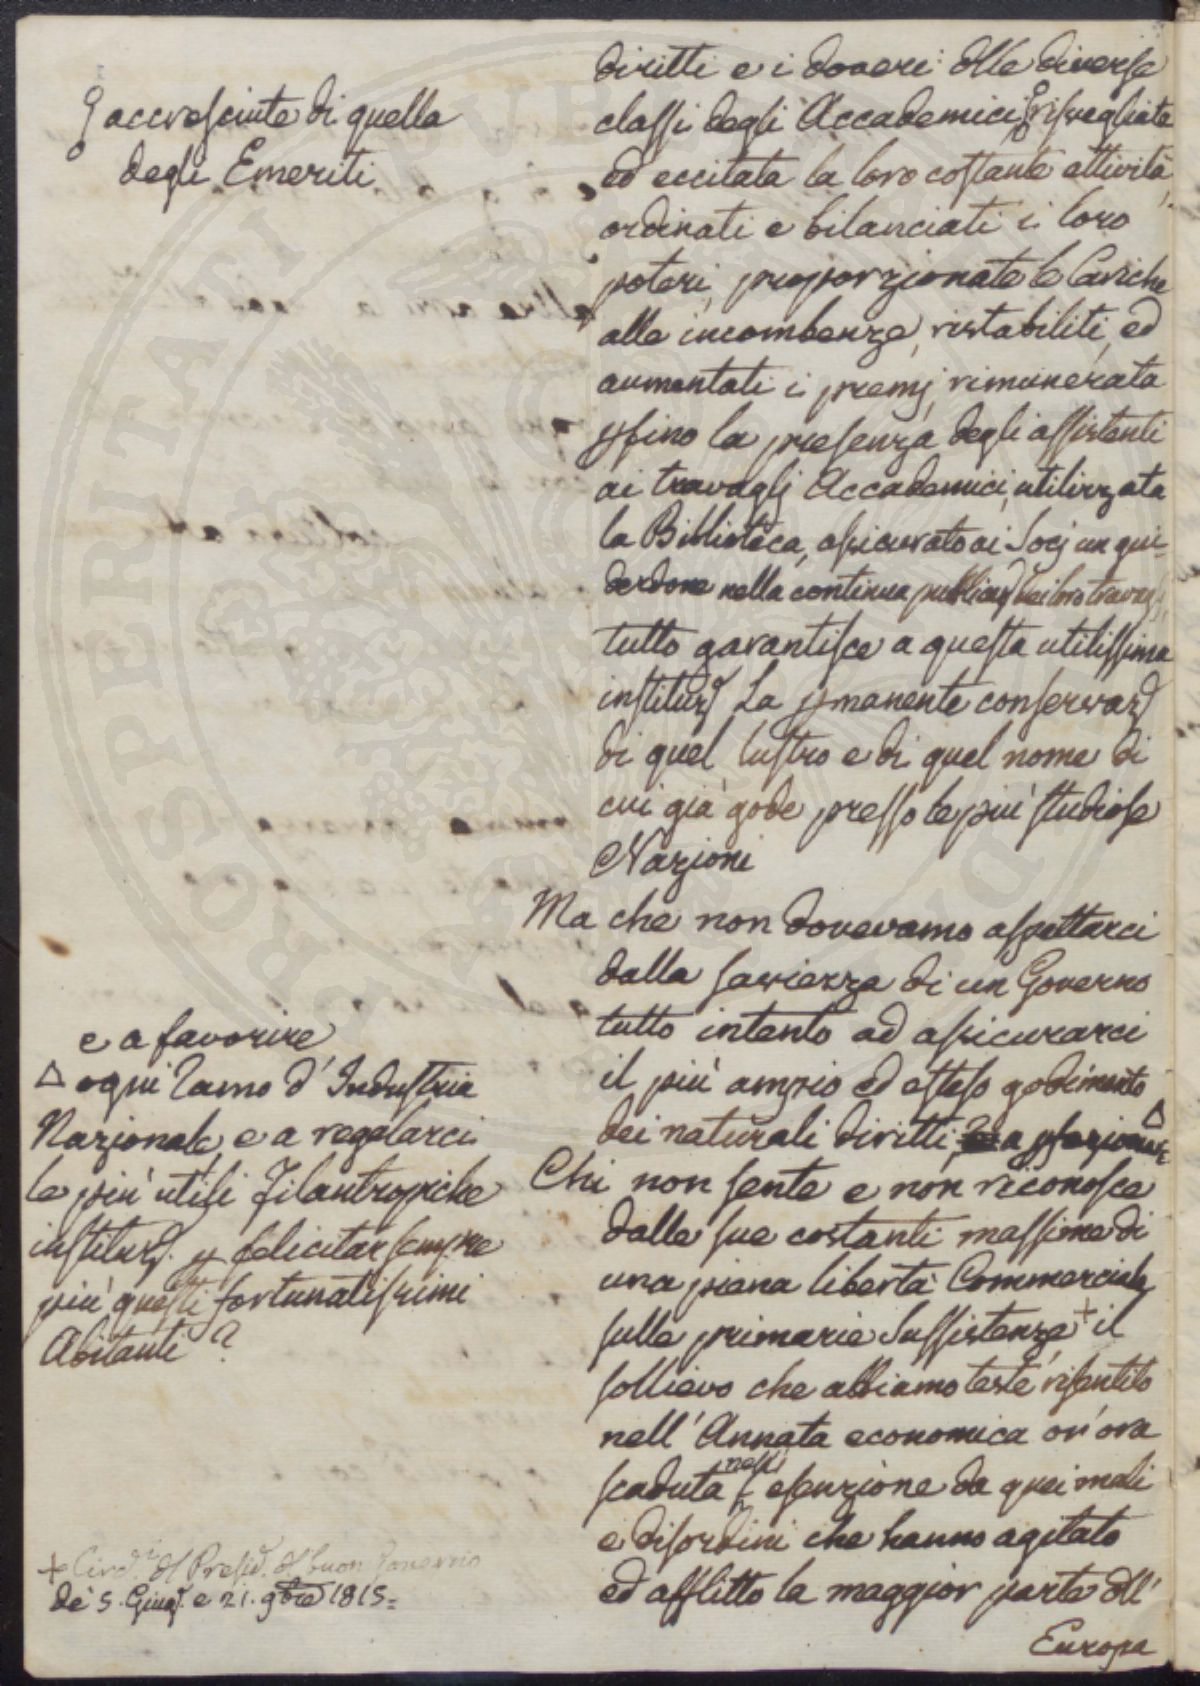 accresciute di quella
degli Emeriti
diritti e i doveri dlle diverse
classi degli Accademici, risvegliata
ed eccitata la loro costante attività,
ordinati e bilanciati i loro
poteri, proporzionate le Cariche
alle incombenze, ristabiliti, ed
aumentati i premj, rimunerata
pfino la presenza degli assistenti
ai travaglj Accademici, utilizzata
la Biblioteca, assicurato ai Socj un gui-
derdone nella continua dei loro
tutto garantisce a questa utilissima
instituz. La pmanente conservaz.
di quel lustro e di quel nome di
cui già gode presso le più studiose
Nazioni
Ma che non dovevamo aspettarci
dalla saviezza di un Governo
tutto intento ad assicurarci
il più ampio ed esteso godimento
dei naturali diritti, a Δ
e a favorire
Δ ogni ramo d'Industria
Nazionale, e a regolarci
le più utili Filantropiche
instituz. p felicitar sempre
più questi fortunatissimi
Abitanti?
Chi non sente e non riconosce
dalle sue costanti massime di
una piena libertà Commerciale
sulle primarie Sussistenze + il
sollievo che abbiamo testè risentito
nell'Annata economica or'ora
scaduta nell' esenzione da quei mali
e disordini che hanno agitato
ed afflitto la maggior parte dll'
Europa
+ Circ.i dl Presid. dl buon Governo
de' 5. Giug. e 21. 9bre 1815=